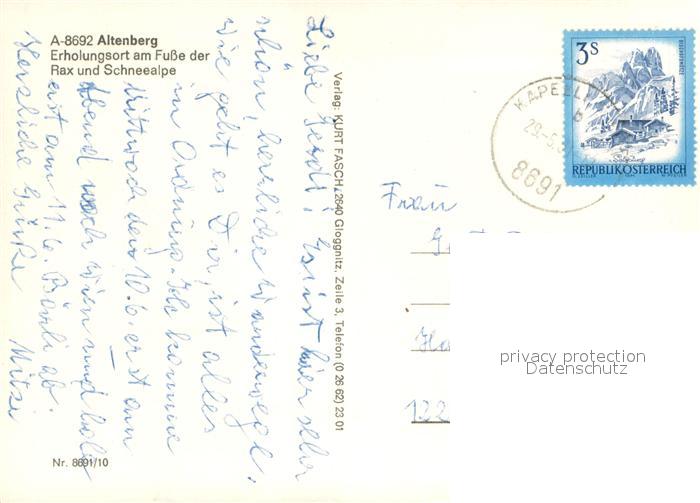 A-8692 Altenberg
Erholungsort am Fuße der
Rax und Schneealpe
Liebe Gerdi! Es ist hier sehr
schön, herrliche Wanderwege.
Wie geht es Dir, ist alles
in Ordnung. Ich komme
Mittwoch den 10.6. erst am
Abend nach Wien und hole
erst am 11.6. ab.
Herzliche Grüße Mitzi
Nr. 8691/10
Verlag: KURT FASCH, 2640 Gloggnitz, Zeile 3, Telefon (0 26 62) 23 01
3 S
REPUBLIK ÖSTERREICH
KAPELLEN
8691
Frau
122
privacy protection
Datenschutz